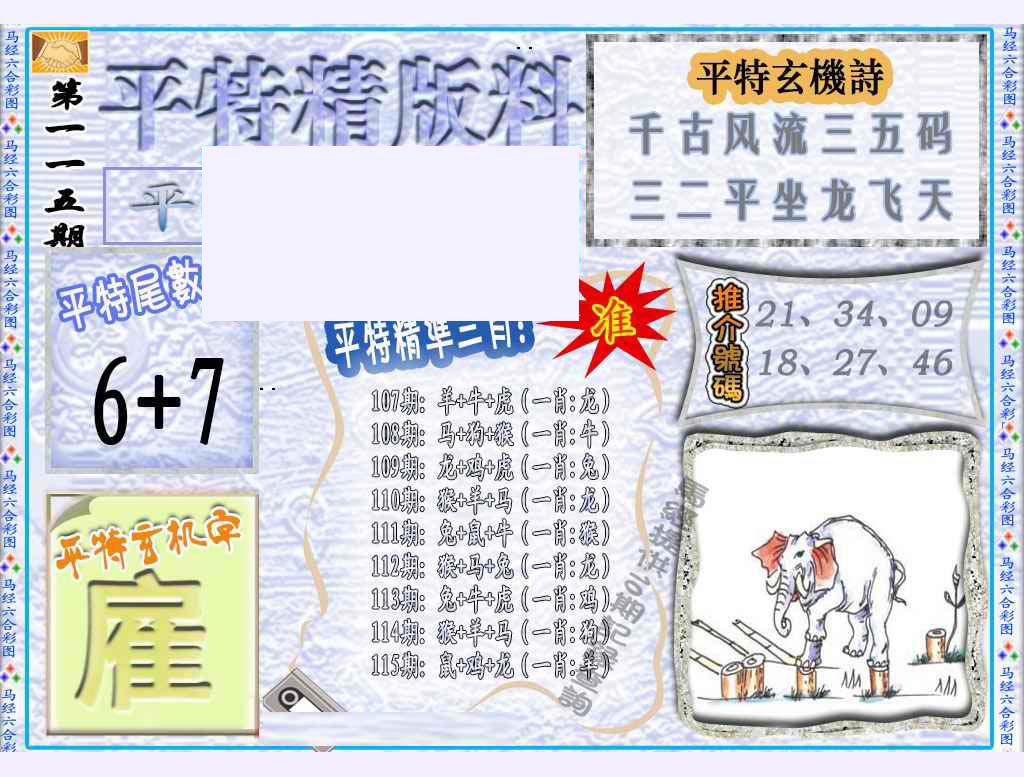 第一一五期
平特精版料
平
平特玄機詩
千古风流三五码
三二平坐龙飞天
平特尾數
6+7
平特精準三肖!
准
推介號碼
21、34、09
18、27、46
107期: 羊+牛+虎 (一肖:龙)
108期: 马+狗+猴 (一肖:牛)
109期: 龙+鸡+虎 (一肖:兔)
110期: 猴+羊+马 (一肖:龙)
111期: 兔+鼠+牛 (一肖:猴)
112期: 猴+马+兔 (一肖:龙)
113期: 兔+牛+虎 (一肖:鸡)
114期: 猴+羊+马 (一肖:狗)
115期: 鼠+鸡+龙 (一肖:羊)
平特玄机字
雇
马经六合彩图
马经六合彩图
马经六合彩图
马经六合彩图
马经六合彩图
马经六合彩图
马经六合彩
马经六合彩图
马经六合彩图
马经六合彩图
马经六合彩图
马经六合彩图
马经六合彩图
马经六合彩图